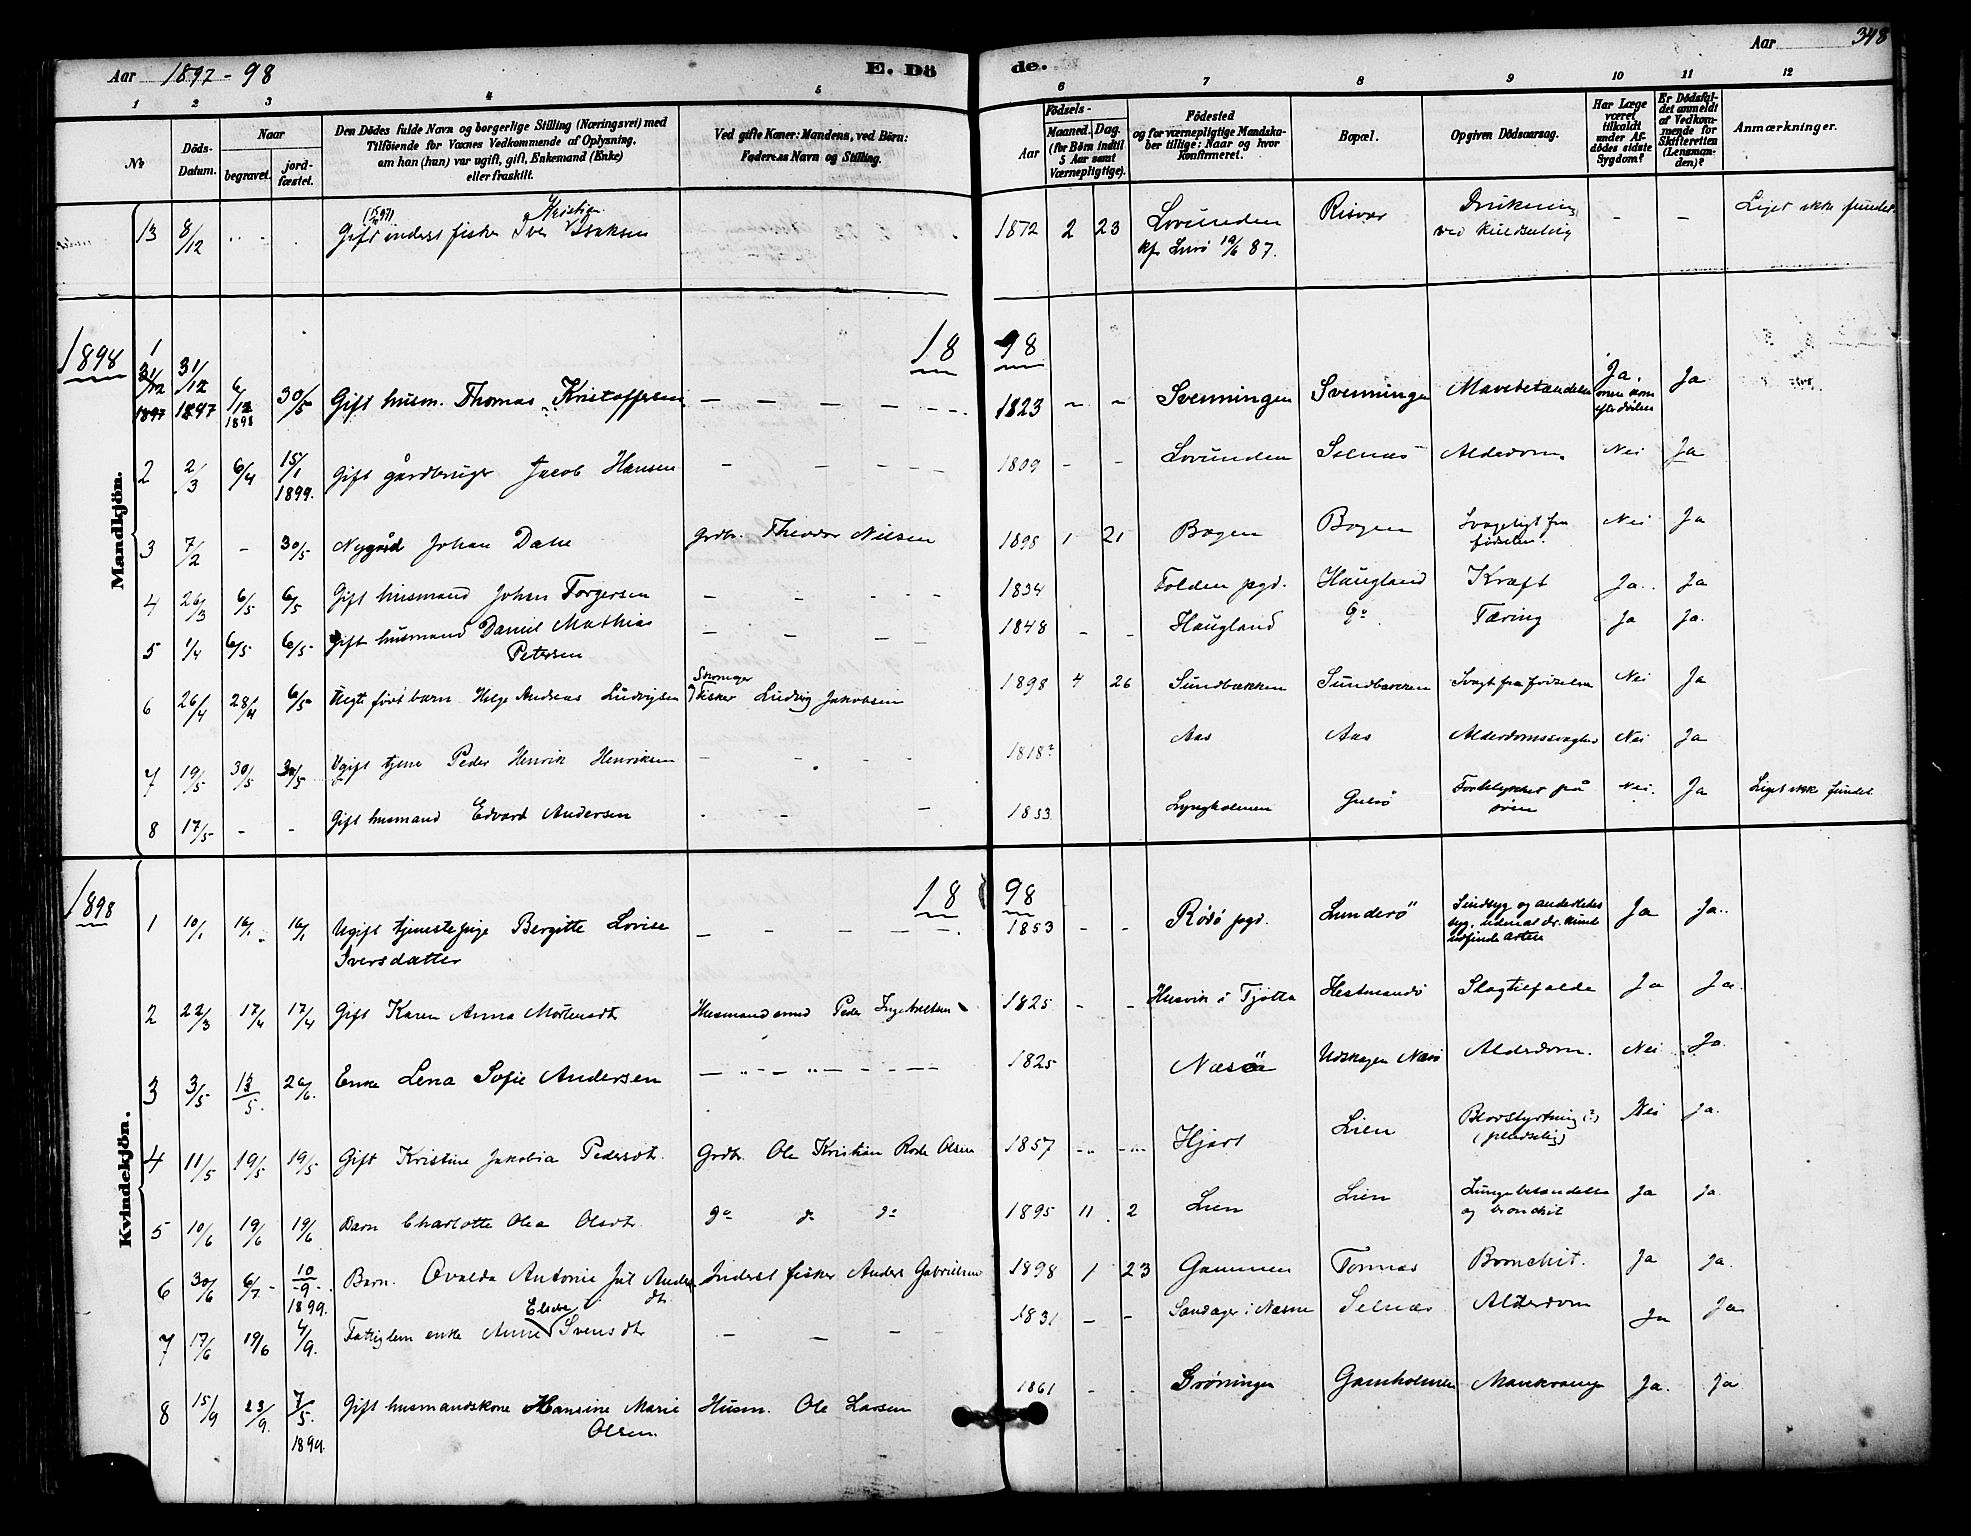 Aar 1897-98
E. Dö
de.
Aar 348
1 2 3 4 5 6 7 8 9 10 11 12
No
Döds-Datum.
Naar
begravet.
jord-fæstet.
Den Dödes fulde Navn og borgerlige Stilling (Næringsvei) med
Tilföiende for Voxnes Vedkommende af Oplysning,
om han (hun) var ugift, gift, Enkemand (Enke)
eller fraskilt.
Ved gifte Koner: Mandens, ved Börn:
Faderens Navn og Stilling.
Födsels-
Aar
Maaned. Dag.
(for Börn indtil
5 Aar samt
Værnepligtige).
Födested
og for værnepligtige Mandska-
ber tillige: Naar og hvor
konfirmeret.
Bopæl.
Opgiven Dödsaarsag.
Har Læge
været
tilkaldt
under Af-
dödes sidste
Sygdom?
Er Dödsfal-
det anmeldt
af Vedkom-
mende for
Skifteretten
(Lensman-
den)?
Anmærkninger.
Mandkjön.
13 8/12 Gift inderst fisker Iver Kristian Isaksen 1872 2 23 Lovunden Risvær Drukning Liget ikke fundet.
kf. Lurö 19/6 87.
1898 18 98
1
31/12 1897 31/12 1897 6/12 1898 30/5 Gift husm. Thomas Kristoffersen 1823 Svenningen Svenningen Mavebetændelse Ja. Ja
2 2/3 6/4 15/1 1899. Gift gårdbruger Jacob Hansen 1809 Lovunden Selnæs Alderdom. Nei Ja
3 7/2 - 30/5 Johan Grdbr. Theodor Nilsen 1898 1 21 Bogen Bogen Svageligt fra fødselen. Nei Ja
4 26/3 6/5 6/5 Gift husmand Johan Torgersen 1834 Folden pgd. Haugland Kræft Ja. Ja
5 1/4 6/5 6/5 Gift husmand Daniel Mathias Petersen 1848 Haugland do Tæring Ja Ja.
6 26/4 28/4 6/5 Ægte født barn Helge Andreas Ludvigsen Skomager Fisker Ludvig Jakobsen 1898 4 26 Sundbækken Sundbækken Svagt fra fødselen Nei Ja
7 19/5 30/5 30/5 Ugift tjener Peder Henrik Henriksen 1818? Aas Aas Alderdomssvaghed Nei Ja
8 17/5 - - Gift husmand Edvard Andersen 1853 Lyngholmen Gulsö Forulykket på søen Nei. Ja Liget ikke fundet
Kvindekjön.
1898 18 98
1 10/1 16/1 16/1 Ugift tjenestepige Bergitte Lovise Iversdatter 1853 Rödö pgd. Lunderö Ja Ja.
2 22/3 17/4 17/4 Gift Karen Anna Mortensdtr Husmand Peder Ingebrektsen 1825 Husvik i Tjötta Hestmandö Slagtilfælde Ja Ja.
3 3/5 13/5. 26/6. Enke Lena Sofie Andersen 1825 Næsöa Næsö Alderdom. Nei Ja.
4 11/5 19/5 19/5 Gift Kristine Jakobia Pedersdtr. Grdbr. Ole Kristian Olsen 1857 Hjart Lien Blodstyrtning (?) (pludselig) Nei Ja.
5 10/6 19/6 19/6 Barn Charlotte Olea Olsdtr do do do 1895 11 2 Lien Lien Lungebetændelse og bronchit Ja Ja
6 30/6 6/7 10/9 1899. Barn. Ovalda Antonie Jul Andersdtr. Inderst fisker Anders Gabrielsen 1898 1 23 Gammen Tonnes Bronchit. Ja Ja.
7 17/6 19/6 4/9. Fattiglem enke Anne Svensdtr 1831 Sandager i Næsne Selnæs Alderdom Ja Ja
8 15/9 23/9. 7/5. 1899. Gift husmandskone Hansine Marie Olsen. Husm. Ole Larsen 1861 Gröningen Gamholmen Ja. Ja